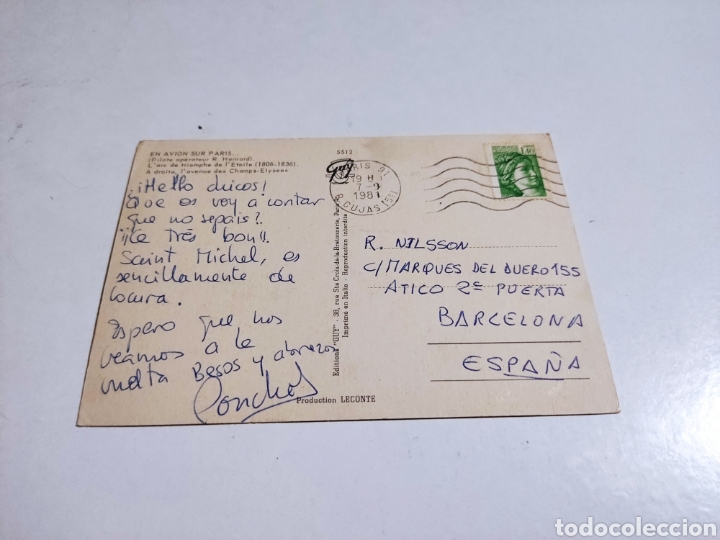 EN AVION SUR PARIS...
(Pilote opérateur R. Henrard)
L'arc de triomphe de l'Etoile (1806-1836).
A droite, l'avenue des Champs-Elysées
¡Hello chicos!
Que os voy a contar
que no sepais?.
¡¡Le Très bon!!.
Saint Michel, es
sencillamente de
locura.
Espero que nos
veamos a la
vuelta Besos y abrazos
Conchas
5512
Guy
Editions "GUY" - 36, rue Ste Croix-de-la-Bretonnerie, Paris
Imprimé en Italie - Reproduction interdite
Production LECONTE
PARIS
19 H
7-9
1981
CUJAS (5e)
1,40
R. NILSSON
C/MARQUES DEL DUERO 155
ATICO 2ª PUERTA
BARCELONA
ESPAÑA
todocoleccion